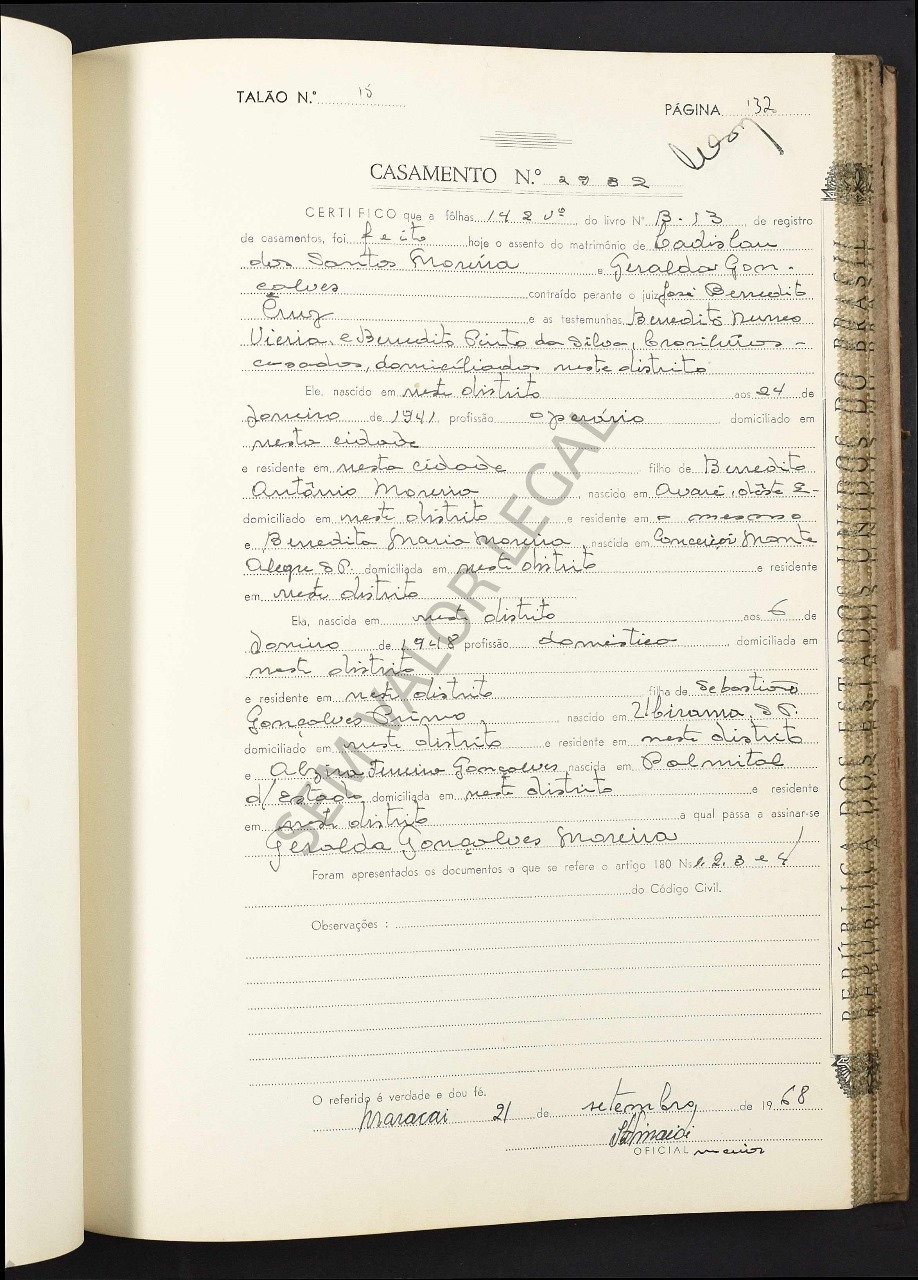 TALÃO N.º 15
PÁGINA 132
CASAMENTO N.º 2982
CERTIFICO que a fôlhas, 142 vº do livro Nº B-13, de registro
de casamentos, foi feito hoje o assento do matrimônio de Ladislau
dos Santos Moreira e Geralda Gon-
çalves contraído perante o juiz José Benedito
Cruz e as testemunhas, Benedito Nunes
Vieira e Benedito Pinto da Silva, brasileiros -
casados, domiciliados neste distrito
Ele, nascido em neste distrito aos 24 de
Janeiro de 1941, profissão operário domiciliado em
nesta cidade
e residente em nesta cidade filho de Benedito
Antônio Moreira, nascido em Avaré, dêste E-
domiciliado em neste distrito e residente em o mesmo
e Benedita Maria Moreira, nascida em Conceição Monte
Alegre S.P. domiciliada em neste distrito e residente
em neste distrito
Ela, nascida em neste distrito aos 6 de
Janeiro de 1948 profissão doméstica, domiciliada em
neste distrito
e residente em neste distrito filha de Sebastião
Gonçalves Primo nascido em Ubirama, S.P.
domiciliado em neste distrito e residente em neste distrito
e Alzira Gonçalves nascida em Palmital
d/Estado, domiciliada em neste distrito e residente
em neste distrito a qual passa a assinar-se
Geralda Gonçalves Moreira
Foram apresentados os documentos a que se refere o artigo 180 Ns 1, 2, 3 e 4
do Código Civil.
Observações :
O referido é verdade e dou fé.
Maracai 21 de setembro de 1968
OFICIAL maior
SEM VALOR LEGAL
REPÚBLICA DOS ESTADOS UNIDOS DO BRASIL